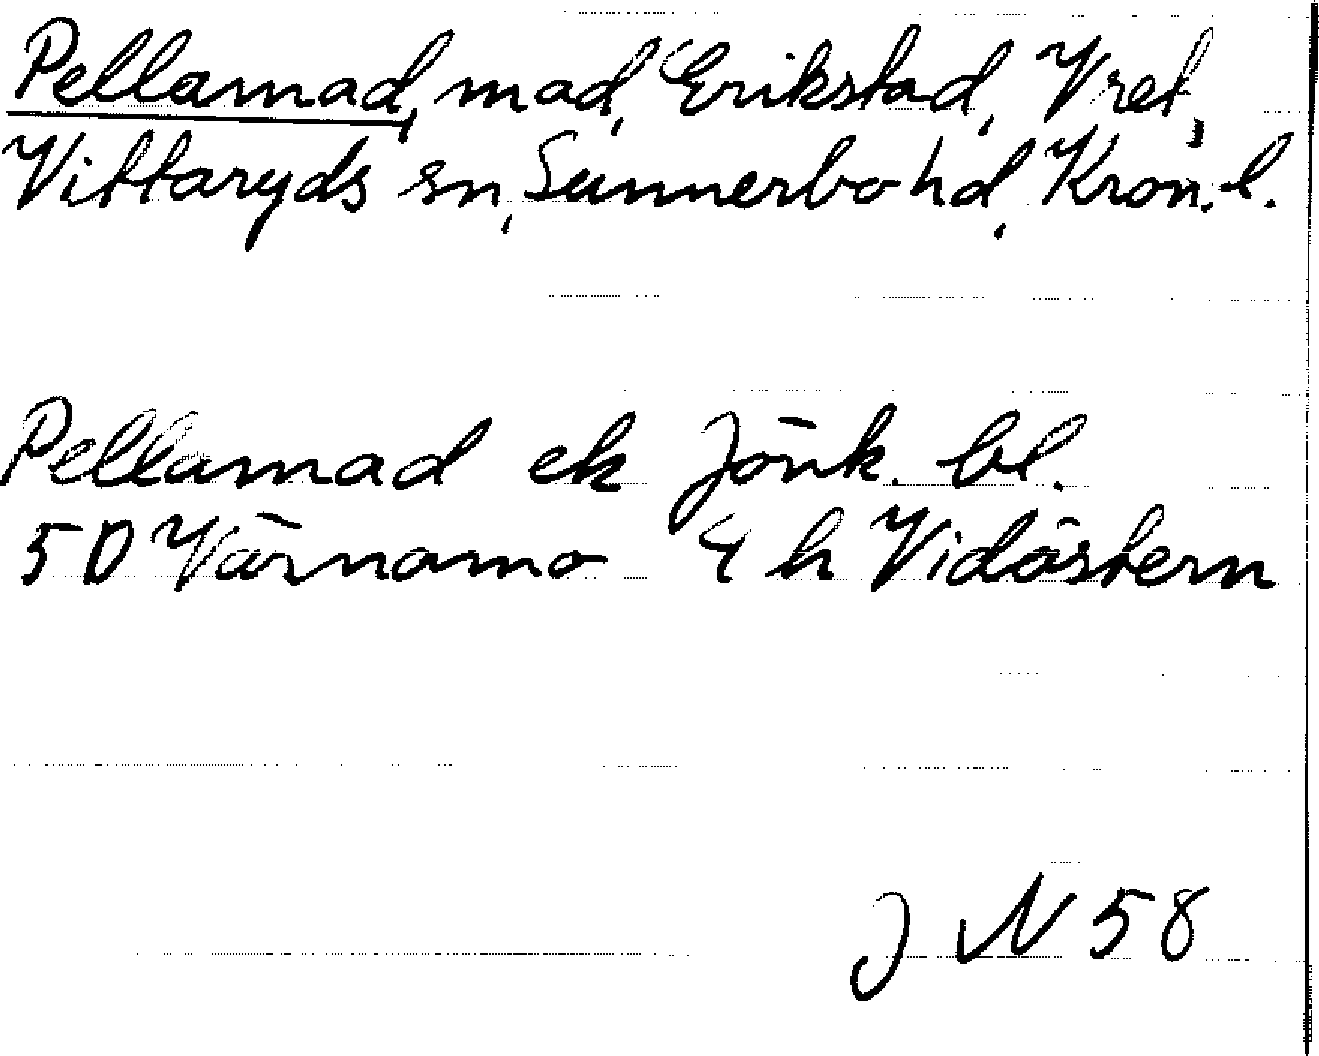 Pellamad, mad, Erikstad, Vret,
Vittaryds sn, Sunnerbo hd, Kron. l.
Pellamad ek Jönk. bl.
5D Värnamo 4 h Vidöstern
J N 58